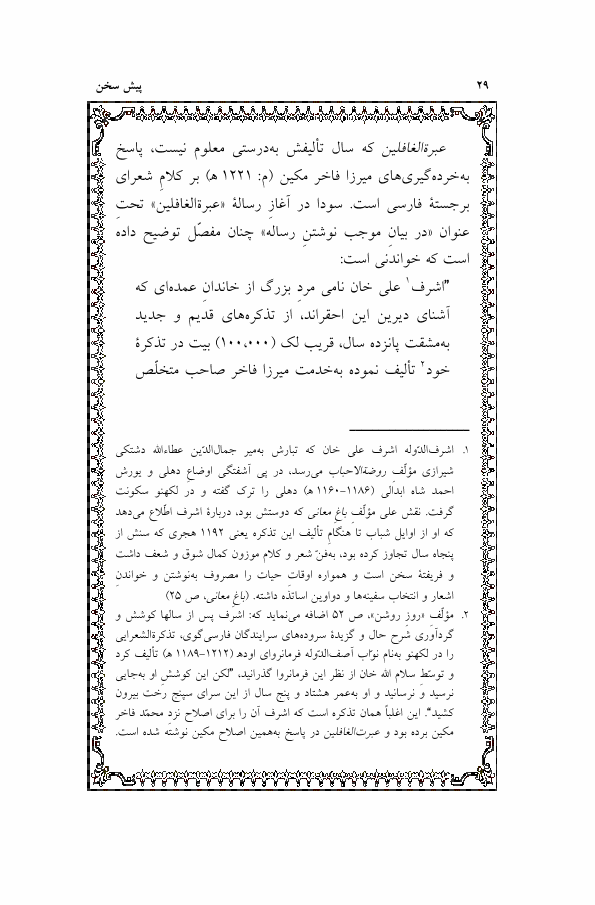 ۲۹ پیش سخن
عبرةالغافلین که سال تألیفش به‌درستی معلوم نیست، پاسخ
به‌خرده‌گیری‌های میرزا فاخر مکین (م: ۱۲۲۱ ه‍) بر کلامِ شعرای
برجستهٔ فارسی است. سودا در آغازِ رسالهٔ «عبرةالغافلین» تحتِ
عنوان «در بیانِ موجب نوشتنِ رساله» چنان مفصّل توضیح داده
است که خواندنی است:
”اشرف۱ علی خان نامی مردِ بزرگ از خاندانِ عمده‌ای که
آشنای دیرین این احقراند، از تذکره‌های قدیم و جدید
به‌مشقت پانزده سال، قریب لک (۱۰۰،۰۰۰) بیت در تذکرهٔ
خود۲ تألیف نموده به‌خدمت میرزا فاخر صاحب متخلّص
۱. اشرف‌الدّوله اشرف علی خان که تبارش به‌میر جمال‌الدّین عطاءالله دشتکی
شیرازی مؤلّفِ روضةالاحباب می‌رسد، در پی آشفتگی اوضاعِ دهلی و یورش
احمد شاه ابدالی (۱۱۸۶-۱۱۶۰ ه‍) دهلی را ترک گفته و در لکهنو سکونت
گرفت. نقش علی مؤلّفِ باغِ معانی که دوستش بود، دربارهٔ اشرف اطّلاع می‌دهد
که او از اوایل شباب تا هنگامِ تألیف این تذکره یعنی ۱۱۹۲ هجری که سنش از
پنجاه سال تجاوز کرده بود، به‌فنّ شعر و کلام موزون کمال شوق و شعف داشت
و فریفتهٔ سخن است و همواره اوقاتِ حیات را مصروف به‌نوشتن و خواندنِ
اشعار و انتخاب سفینه‌ها و دواوین اساتذه داشته. (باغِ معانی، ص ۲۵)
۲. مؤلّفِ «روزِ روشن»، ص ۵۲ اضافه می‌نماید که: اشرف پس از سالها کوشش و
گردآوری شرح حال و گزیدهٔ سروده‌های سرایندگان فارسی‌گوی، تذکرةالشعرایی
را در لکهنو به‌نام نوّاب آصف‌الدّوله فرمانروای اوده (۱۲۱۲-۱۱۸۹ ه‍) تألیف کرد
و توسّط سلام الله خان از نظر این فرمانروا گذرانید، ”لکن این کوششِ او به‌جایی
نرسید و نرسانید و او به‌عمر هشتاد و پنج سال از این سرای سپنج رخت بیرون
کشید“. این اغلباً همان تذکره است که اشرف آن را برای اصلاح نزدِ محمّد فاخر
مکین برده بود و عبرت‌الغافلین در پاسخ به‌همین اصلاح مکین نوشته شده است.